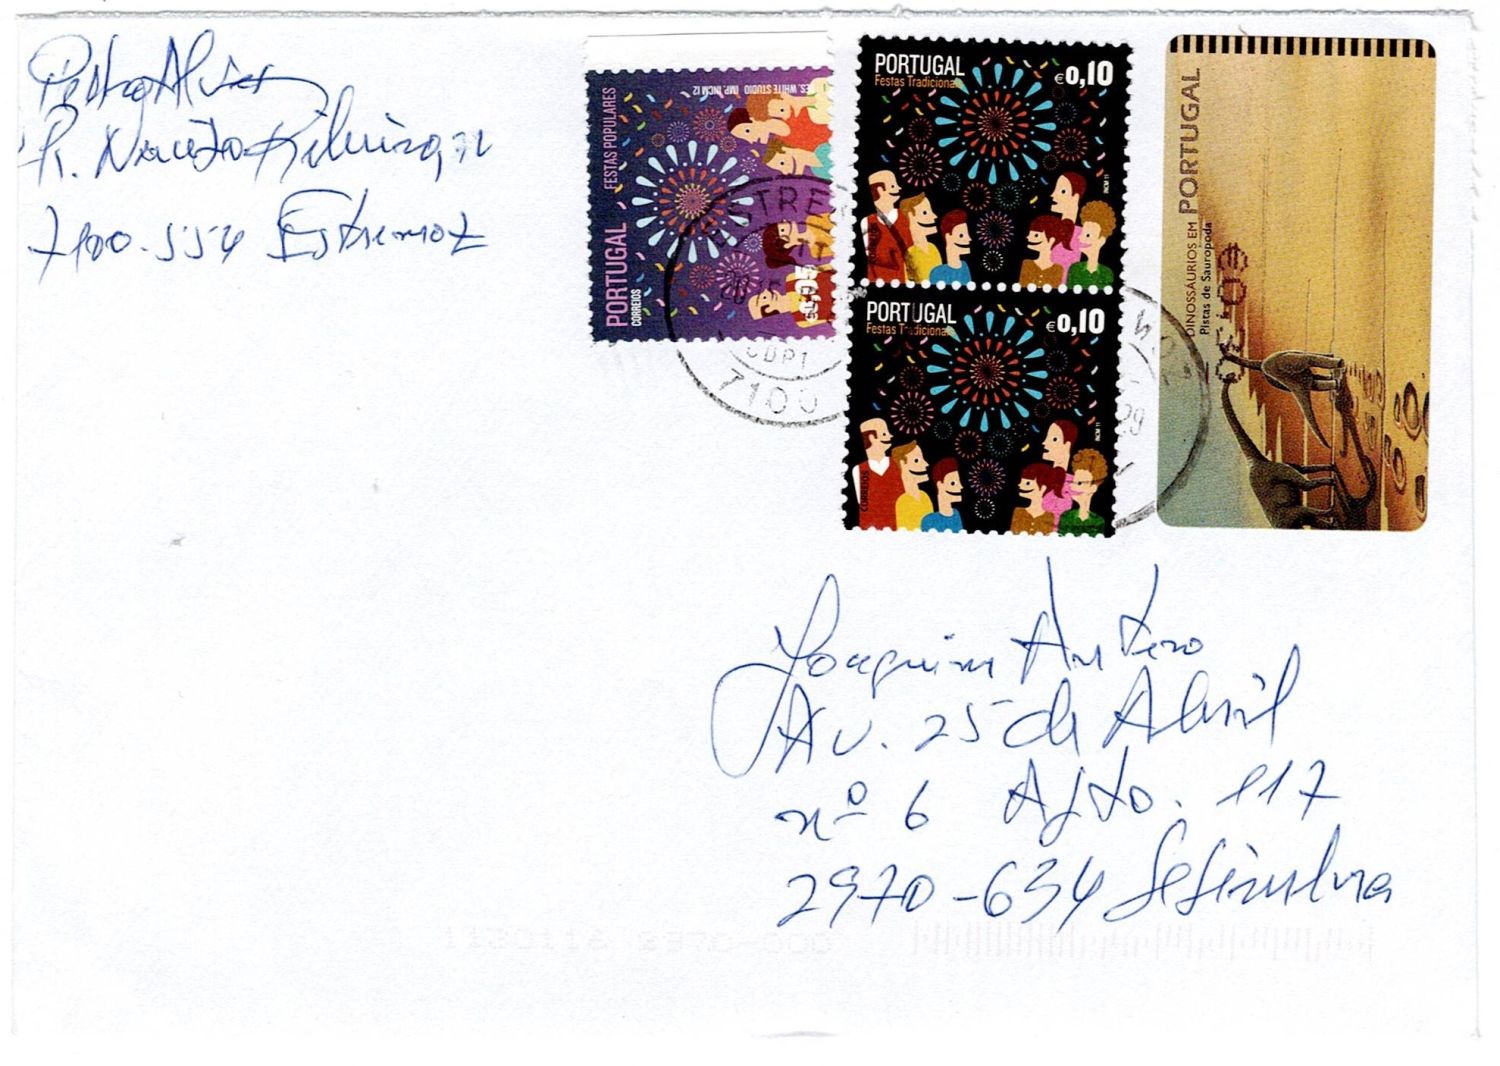 Pedro Alves
R. Ribeiro,
7100-554 Estremoz
PORTUGAL
CORREIOS
FESTAS POPULARES
DES. WHITE STUDIO IMP. INCM 12
PORTUGAL
€0,10
Festas Tradicionais
INCM 11
PORTUGAL
€0,10
Festas Tradicionais
INCM 11
CORREIOS
DINOSSÁURIOS EM PORTUGAL
Pistas de Sauropoda
ESTRE
CDP1
7100
Joaquim Antero
Av. 25 de Abril
nº 6 Apto. 117
2970-634 Sesimbra
2970-000